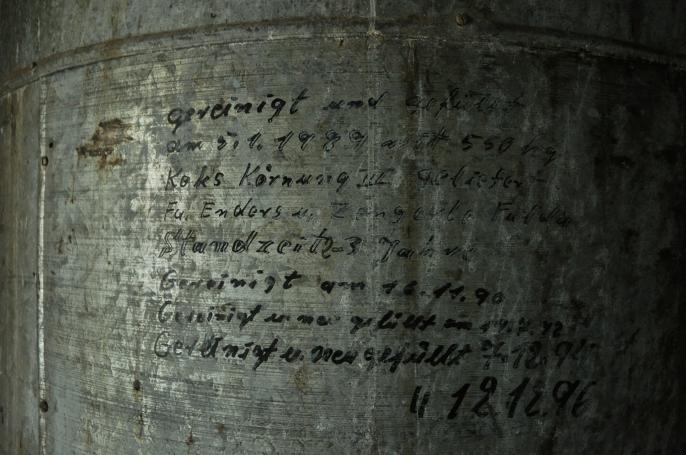 gereinigt und gefüllt
am 5.1.1989 mit 550 kg
Koks Körnung III Geliefert
Fa. Enders u. Fulda
Standzeit 2-3 Jahre
Gereinigt am 16.11.90
Gereinigt u. neu gefüllt am
Gereinigt u. neu gefüllt
" 12.12.96